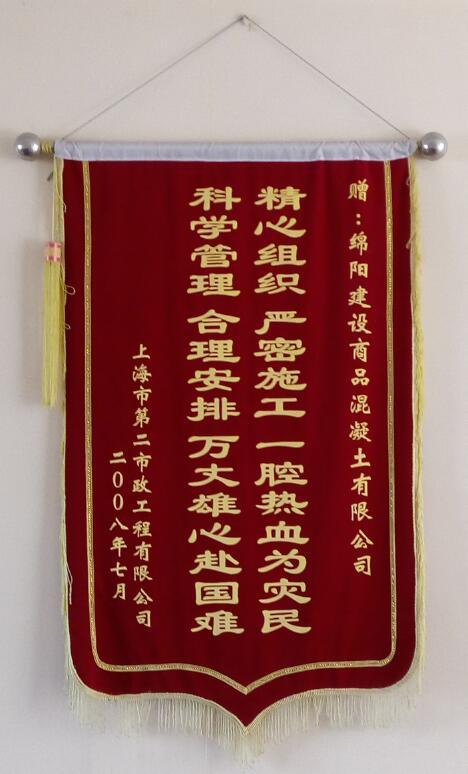 赠：绵阳建设商品混凝土有限公司
精心组织 严密施工 一腔热血为灾民
科学管理 合理安排 万丈雄心赴国难
上海市第二市政工程有限公司
二00八年七月